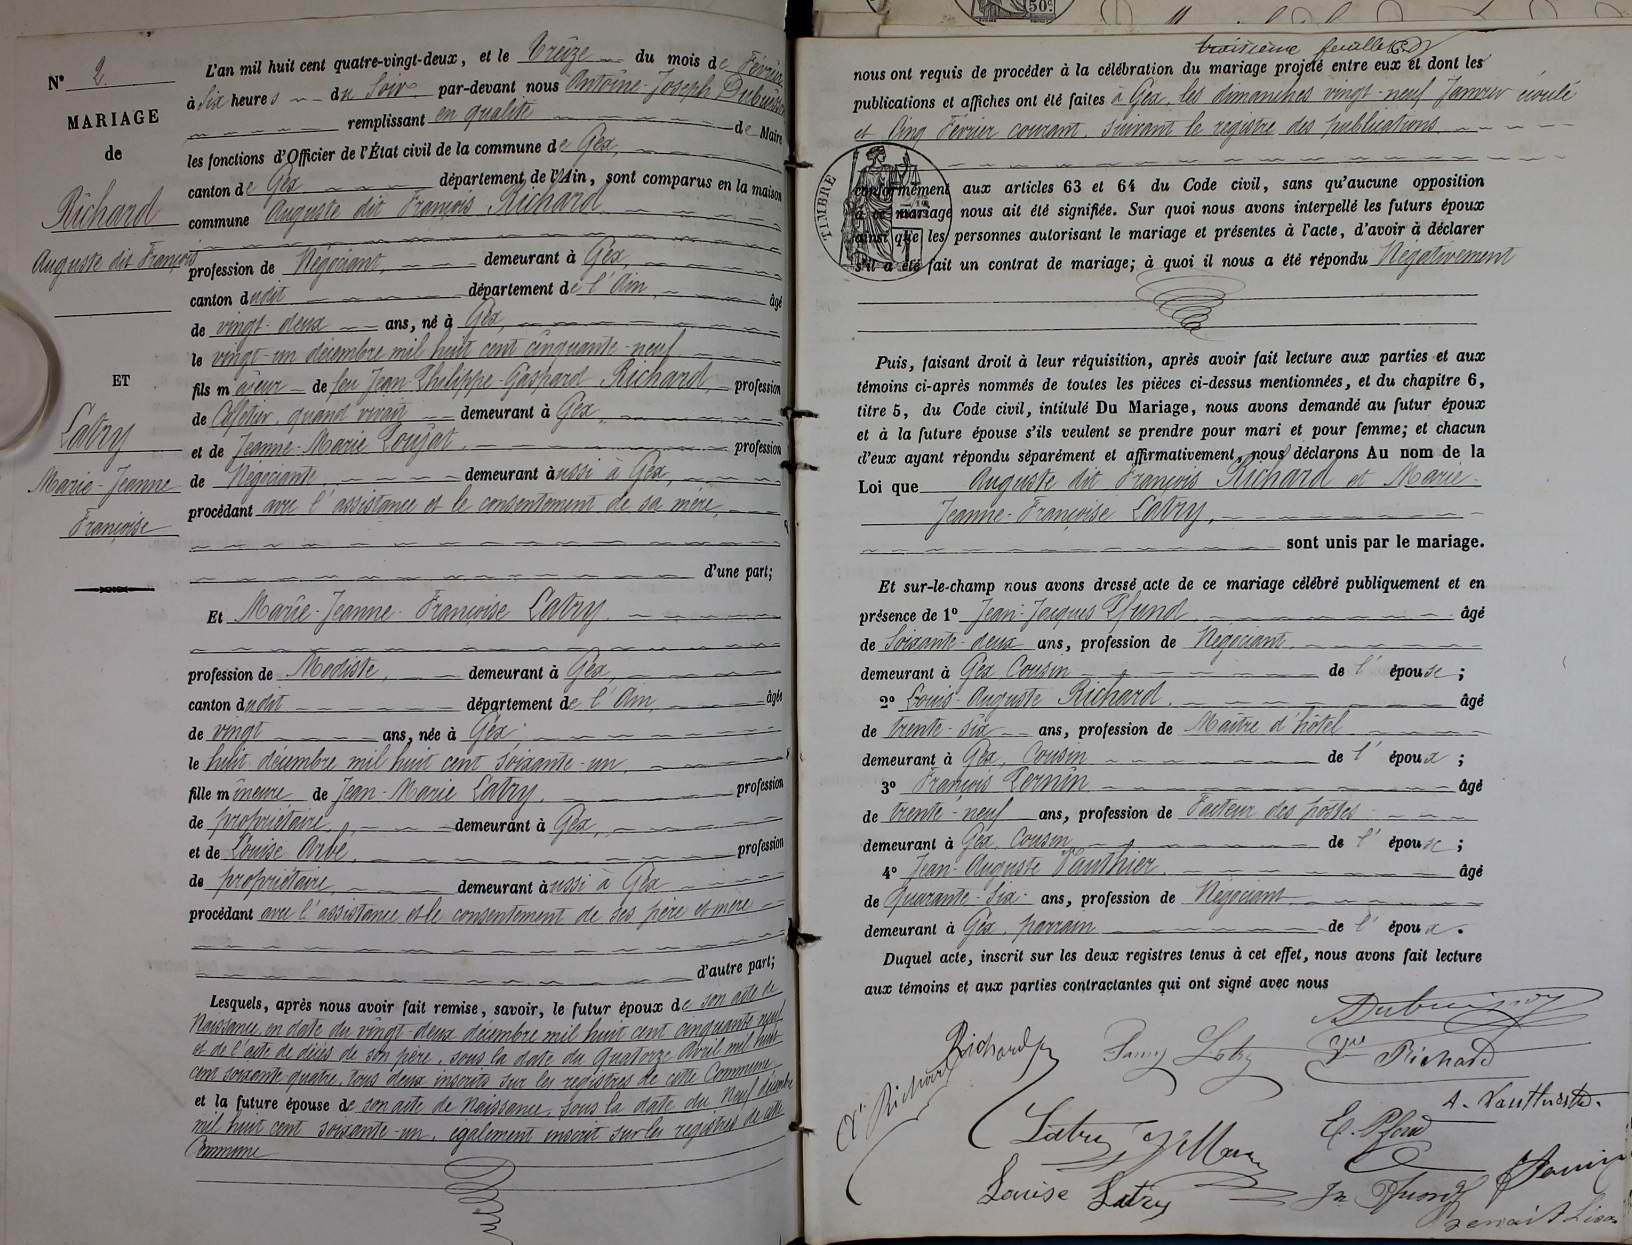 N° 2
MARIAGE
de
Richard
Auguste dit François
ET
Latry
Marie-Jeanne
Françoise
L'an mil huit cent quatre-vingt-deux, et le Treize du mois de Février
à Six heures du Soir par-devant nous Antoine-Joseph Dubuisson
remplissant en qualité de Maire
les fonctions d'Officier de l'État civil de la commune de Gex,
canton de Gex département de l'Ain, sont comparus en la maison
commune Auguste dit François Richard
profession de Négociant, demeurant à Gex,
canton dudit département de l'Ain, âgé
de vingt-deux ans, né à Gex,
le vingt-un décembre mil huit cent cinquante-neuf
fils majeur de feu Jean Philippe-Gaspard Richard, profession
de Cafetier, quand vivait demeurant à Gex,
et de Jeanne-Marie Goujat, profession
de Négociante, demeurant aussi à Gex,
procédant avec l'assistance et le consentement de sa mère,
d'une part;
Et Marie-Jeanne-Françoise Latry,
profession de Modiste, demeurant à Gex,
canton dudit département de l'Ain, âgée
de vingt ans, née à Gex,
le huit décembre mil huit cent soixante-un,
fille mineure de Jean-Marie Latry, profession
de propriétaire, demeurant à Gex,
et de Louise profession
de propriétaire, demeurant aussi à Gex
procédant avec l'assistance et le consentement de ses père et mère
d'autre part;
Lesquels, après nous avoir fait remise, savoir, le futur époux de son acte de
Naissance en date du vingt-deux décembre mil huit cent cinquante neuf
et de l'acte de décès de son père, sous la date du Quatorze Avril mil huit
cent soixante quatre, tous deux inscrits sur les registres de cette Commune,
et la future épouse de son acte de Naissance, sous la date du Neuf décembre
mil huit cent soixante-un, également inscrit sur les registres de cette
Commune
troisième feuillet
nous ont requis de procéder à la célébration du mariage projeté entre eux et dont les
publications et affiches ont été faites à Gex, les dimanches vingt-neuf Janvier écoulé
et Cinq Février courant, suivant le registre des publications
TIMBRE
conformément aux articles 63 et 64 du Code civil, sans qu'aucune opposition
à ce mariage nous ait été signifiée. Sur quoi nous avons interpellé les futurs époux
ainsi que les personnes autorisant le mariage et présentes à l'acte, d'avoir à déclarer
s'il a été fait un contrat de mariage; à quoi il nous a été répondu Négativement
Puis, faisant droit à leur réquisition, après avoir fait lecture aux parties et aux
témoins ci-après nommés de toutes les pièces ci-dessus mentionnées, et du chapitre 6,
titre 5, du Code civil, intitulé Du Mariage, nous avons demandé au futur époux
et à la future épouse s'ils veulent se prendre pour mari et pour femme; et chacun
d'eux ayant répondu séparément et affirmativement, nous déclarons Au nom de la
Loi que Auguste dit François Richard et Marie-
Jeanne-Françoise Latry,
sont unis par le mariage.
Et sur-le-champ nous avons dressé acte de ce mariage célébré publiquement et en
présence de 1° Jean-Jacques Pfund, âgé
de Soixante-deux ans, profession de Négociant,
demeurant à Gex Cousin de l'épouse;
2° Louis-Auguste Richard, âgé
de trente-six ans, profession de Maître d'hôtel
demeurant à Gex, Cousin de l'époux;
3° François âgé
de trente-neuf ans, profession de Facteur des postes
demeurant à Gex, Cousin de l'épouse;
4° Jean-Auguste Vauthier, âgé
de Quarante-Six ans, profession de Négociant
demeurant à Gex, parrain de l'époux.
Duquel acte, inscrit sur les deux registres tenus à cet effet, nous avons fait lecture
aux témoins et aux parties contractantes qui ont signé avec nous
Dubuisson
Richard Latry Richard
Richard
Latry
Louise Latry